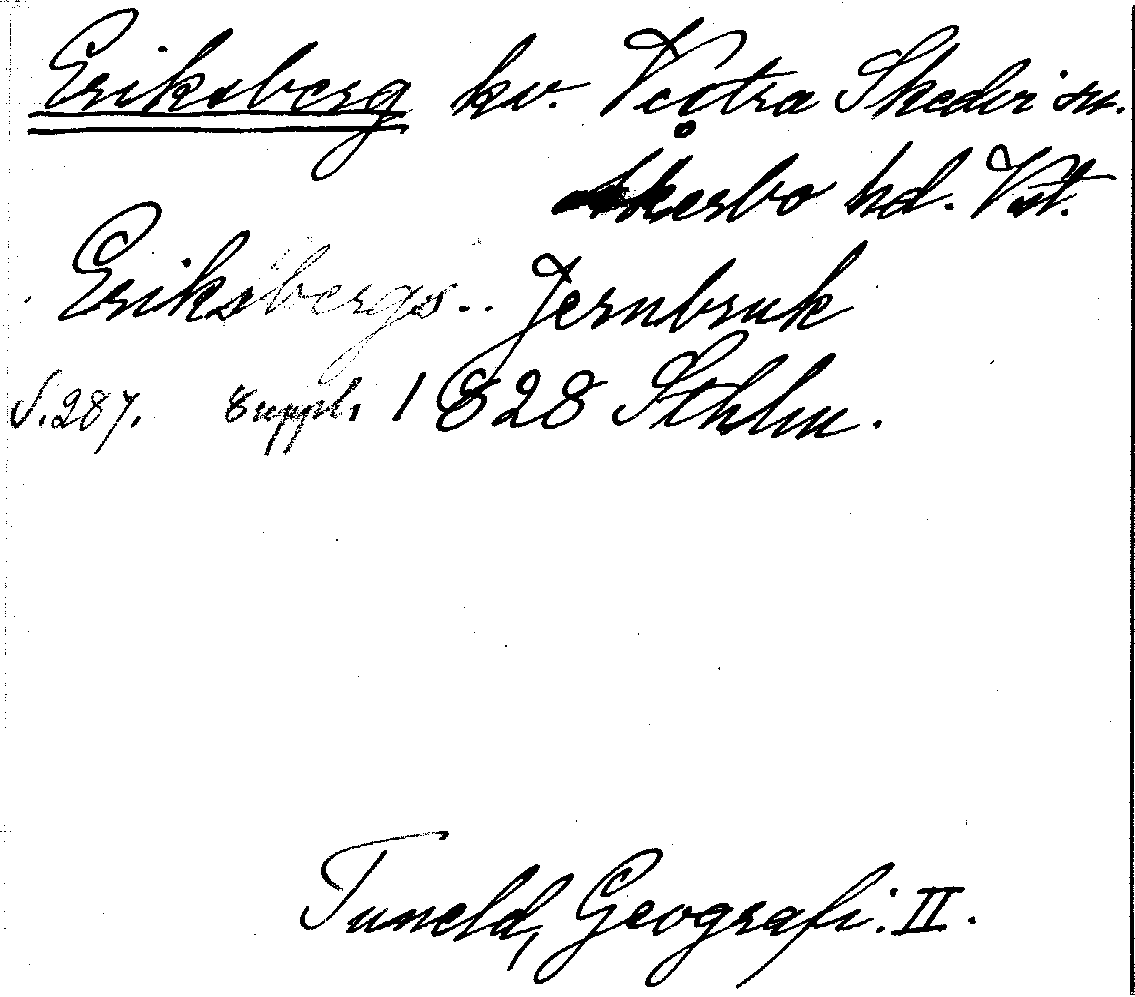 Eriksberg kv. Västra Skedvi sn.
Åkerbo hd. Vstm.
Eriksbergs.. Jernbruk
S. 287. Suppl. 1828 Sthlm.
Tuneld, Geografi. II.